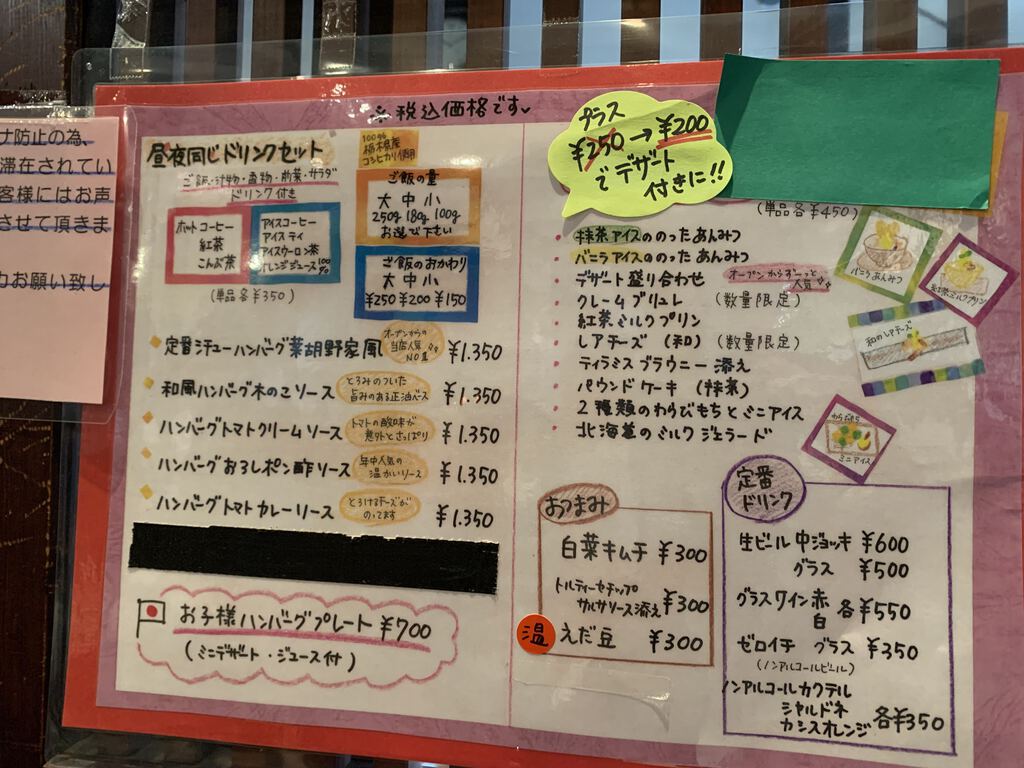 ナ防止の為、
滞在されてい
客様にはお声
させて頂きま
お願い致し
※税込価格です
昼夜同じドリンクセット
ご飯・汁物・香物・前菜・サラダ
ドリンク付き
ホットコーヒー
紅茶
こんぶ茶
アイスコーヒー
アイスティ
アイスウーロン茶
オレンジジュース100%
(単品各¥350)
100%
栃木県産
コシヒカリ使用
ご飯の量
大 中 小
250g 180g 100g
お選び下さい
ご飯のおかわり
大 中 小
¥250 ¥200 ¥150
定番シチューハンバーグ薬胡野家風
オープンからの
当店人気
NO1
¥1.350
和風ハンバーグ木のこソース
とろみのついた
旨みのある正油ベース
¥1.350
ハンバーグトマトクリームソース
トマトの酸味が
意外とさっぱり
¥1.350
ハンバーグおろしポン酢ソース
年中人気の
温かいソース
¥1.350
ハンバーグトマトカレーソース
とろけるチーズが
のってます
¥1.350
お子様ハンバーグプレート ¥700
(ミニデザート・ジュース付)
プラス
¥250→¥200
でデザート
付きに!!
(単品各¥450)
抹茶アイスののったあんみつ
バニラアイスののったあんみつ
デザート盛り合わせ
オープンからずーっと
人気
クレームブリュレ (数量限定)
紅茶ミルクプリン
レアチーズ (和) (数量限定)
ティラミスブラウニー添え
パウンドケーキ (抹茶)
2種類のわらびもちとミニアイス
北海道のミルクジェラード
バニラあんみつ
紅茶ミルクプリン
和のレアチーズ
わらびもち
ミニアイス
おつまみ
白菜キムチ ¥300
トルティーヤチップ
サルサソース添え ¥300
温 えだ豆 ¥300
定番
ドリンク
生ビール 中ジョッキ ¥600
グラス ¥500
グラスワイン 赤
白
各¥550
ゼロイチ グラス ¥350
(ノンアルコールビール)
ノンアルコールカクテル
シャルドネ
カシスオレンジ
各¥350